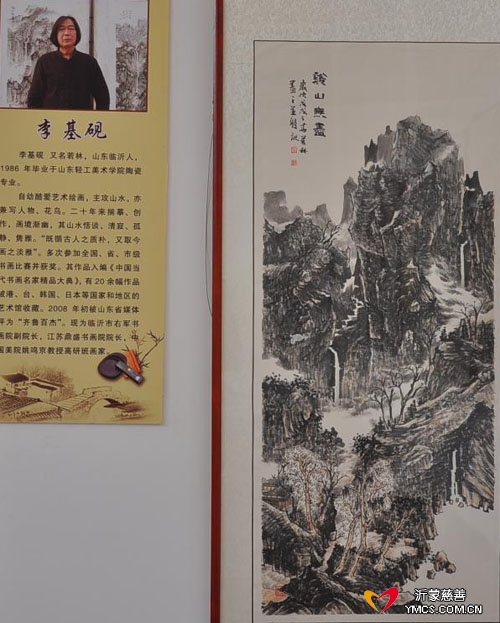 李基砚
李基砚 又名若林，山东临沂人，
1986 年毕业于山东轻工美术学院陶瓷
专业。
自幼酷爱艺术绘画，主攻山水，亦
兼写人物，花鸟。二十年来揣摹、创
作，画境渐幽，其山水恬谈、清寂、孤
静、隽雅。“既循古人之质朴，又取今
画之淡雅”。多次参加全国、省、市级
书画比赛并获奖。其作品入编《中国当
代书画名家精品大典》，有 20 余幅作品
被港、台、韩国、日本等国家和地区的
艺术馆收藏。2008 年初被山东省媒体
评为“齐鲁百杰”。现为临沂市右军书
画院副院长，江苏鼎盛书画院院长，中
国美院姚鸣京教授高研班画家。
山無盡
沂蒙慈善
YMCS.COM.CN